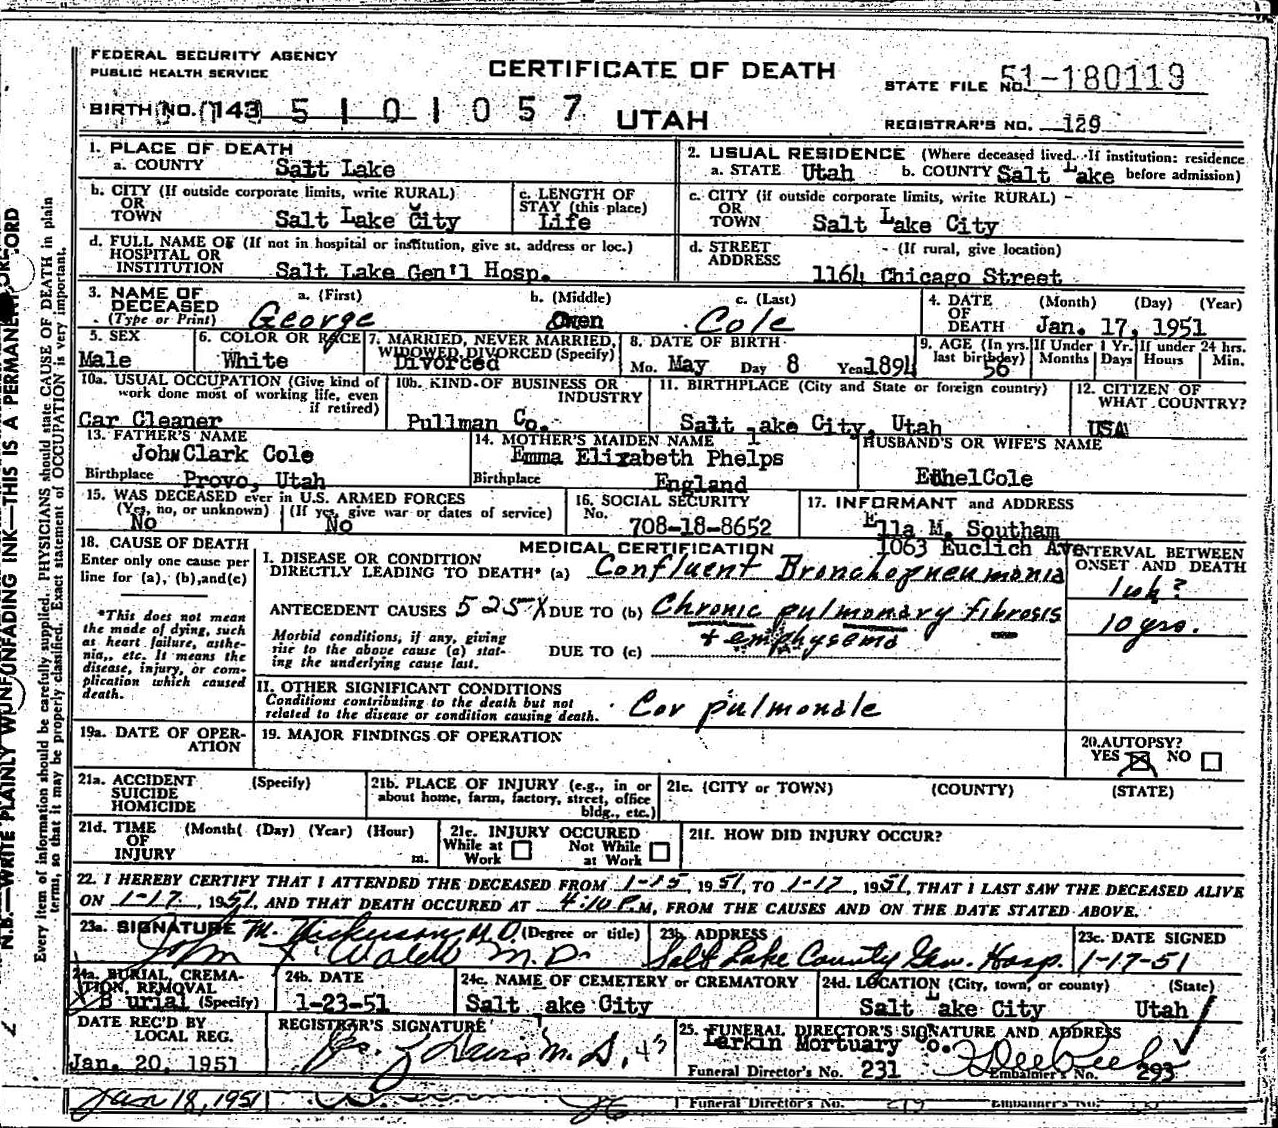 FEDERAL SECURITY AGENCY
PUBLIC HEALTH SERVICE
CERTIFICATE OF DEATH
STATE FILE NO. 51-180119
BIRTH NO. 143 5 1 0 1 0 5 7
UTAH
REGISTRAR'S NO. 129
1. PLACE OF DEATH
a. COUNTY Salt Lake
2. USUAL RESIDENCE (Where deceased lived. If institution: residence before admission)
a. STATE Utah b. COUNTY Salt Lake
b. CITY (If outside corporate limits, write RURAL)
OR
TOWN Salt Lake City
c. LENGTH OF
STAY (this place)
Life
c. CITY (if outside corporate limits, write RURAL)
OR
TOWN Salt Lake City
d. FULL NAME OF (If not in hospital or institution, give st. address or loc.)
HOSPITAL OR
INSTITUTION Salt Lake Gen'l Hosp.
d. STREET (If rural, give location)
ADDRESS 1164 Chicago Street
3. NAME OF DECEASED
(Type or Print)
a. (First) b. (Middle) c. (Last)
George Owen Cole
4. DATE OF DEATH (Month) (Day) (Year)
Jan. 17, 1951
5. SEX
Male
6. COLOR OR RACE
White
7. MARRIED, NEVER MARRIED,
WIDOWED, DIVORCED (Specify)
Divorced
8. DATE OF BIRTH
Mo. May Day 8 Year 1894
9. AGE (In yrs. last birthday) 56
If Under 1 Yr. Months Days
If under 24 hrs. Hours Min.
10a. USUAL OCCUPATION (Give kind of
work done most of working life, even
if retired)
Car Cleaner
10b. KIND OF BUSINESS OR
INDUSTRY
Pullman Co.
11. BIRTHPLACE (City and State or foreign country)
Salt Lake City, Utah
12. CITIZEN OF
WHAT COUNTRY?
USA
13. FATHER'S NAME
John Clark Cole
Birthplace Provo, Utah
14. MOTHER'S MAIDEN NAME
Emma Elizabeth Phelps
Birthplace England
HUSBAND'S OR WIFE'S NAME
Ethel Cole
15. WAS DECEASED ever in U.S. ARMED FORCES
(Yes, no, or unknown) (If yes, give war or dates of service)
No No
16. SOCIAL SECURITY
No. 708-18-8652
17. INFORMANT and ADDRESS
Ella M. Southam
1063 Euclich Ave
18. CAUSE OF DEATH
Enter only one cause per
line for (a), (b), and (c)
*This does not mean
the mode of dying, such
as heart failure, asthe-
nia, etc. It means the
disease, injury, or com-
plication which caused
death.
MEDICAL CERTIFICATION
INTERVAL BETWEEN
ONSET AND DEATH
I. DISEASE OR CONDITION
DIRECTLY LEADING TO DEATH* (a) Confluent Bronchopneumonia 1 wk?
ANTECEDENT CAUSES 525X DUE TO (b) Chronic pulmonary fibrosis 10 yrs.
+ emphysema
Morbid conditions, if any, giving
rise to the above cause (a) stat-
ing the underlying cause last.
DUE TO (c)
II. OTHER SIGNIFICANT CONDITIONS
Conditions contributing to the death but not
related to the disease or condition causing death.
Cor pulmonale
19a. DATE OF OPER-
ATION
19. MAJOR FINDINGS OF OPERATION
20. AUTOPSY?
YES NO
21a. ACCIDENT (Specify)
SUICIDE
HOMICIDE
21b. PLACE OF INJURY (e.g., in or
about home, farm, factory, street, office
bldg., etc.)
21c. (CITY or TOWN) (COUNTY) (STATE)
21d. TIME (Month) (Day) (Year) (Hour)
OF
INJURY m.
21e. INJURY OCCURED
While at Work Not While at Work
21f. HOW DID INJURY OCCUR?
22. I HEREBY CERTIFY THAT I ATTENDED THE DECEASED FROM 1-15, 1951, TO 1-17, 1951, THAT I LAST SAW THE DECEASED ALIVE
ON 1-17, 1951, AND THAT DEATH OCCURED AT 4:10 P.M, FROM THE CAUSES AND ON THE DATE STATED ABOVE.
23a. SIGNATURE M. M.D. (Degree or title)
John F. Waldo M.D.
23b. ADDRESS
Salt Lake County Gen. Hosp.
23c. DATE SIGNED
1-17-51
24a. BURIAL, CREMA-
TION, REMOVAL
Burial (Specify)
24b. DATE
1-23-51
24c. NAME OF CEMETERY or CREMATORY
Salt Lake City
24d. LOCATION (City, town, or county) (State)
Salt Lake City Utah
DATE REC'D BY
LOCAL REG.
Jan. 20, 1951
REGISTRAR'S SIGNATURE
M.D. 43
25. FUNERAL DIRECTOR'S SIGNATURE AND ADDRESS
Larkin Mortuary Co.
Funeral Director's No. 231 Embalmer's No. 293
Jan 18, 1951
Funeral Director's No. Embalmer's No.
N.B.—WRITE PLAINLY W UNFADING INK—THIS IS A PERMANENT RECORD
Every item of information should be carefully supplied. PHYSICIANS should state CAUSE OF DEATH in plain
terms, so that it may be properly classified. Exact statement of OCCUPATION is very important.